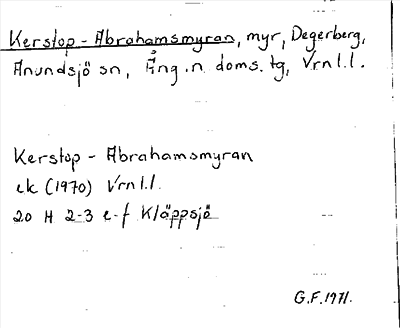 Kerstop - Abrahamsmyran, myr, Degerberg,
Anundsjö sn, Ång.n. doms. tg, Vrn l.l.
Kerstop - Abrahamsmyran
ek (1970) Vrn l.l.
20 H 2-3 e-f Kläppsjö
G.F. 1971.